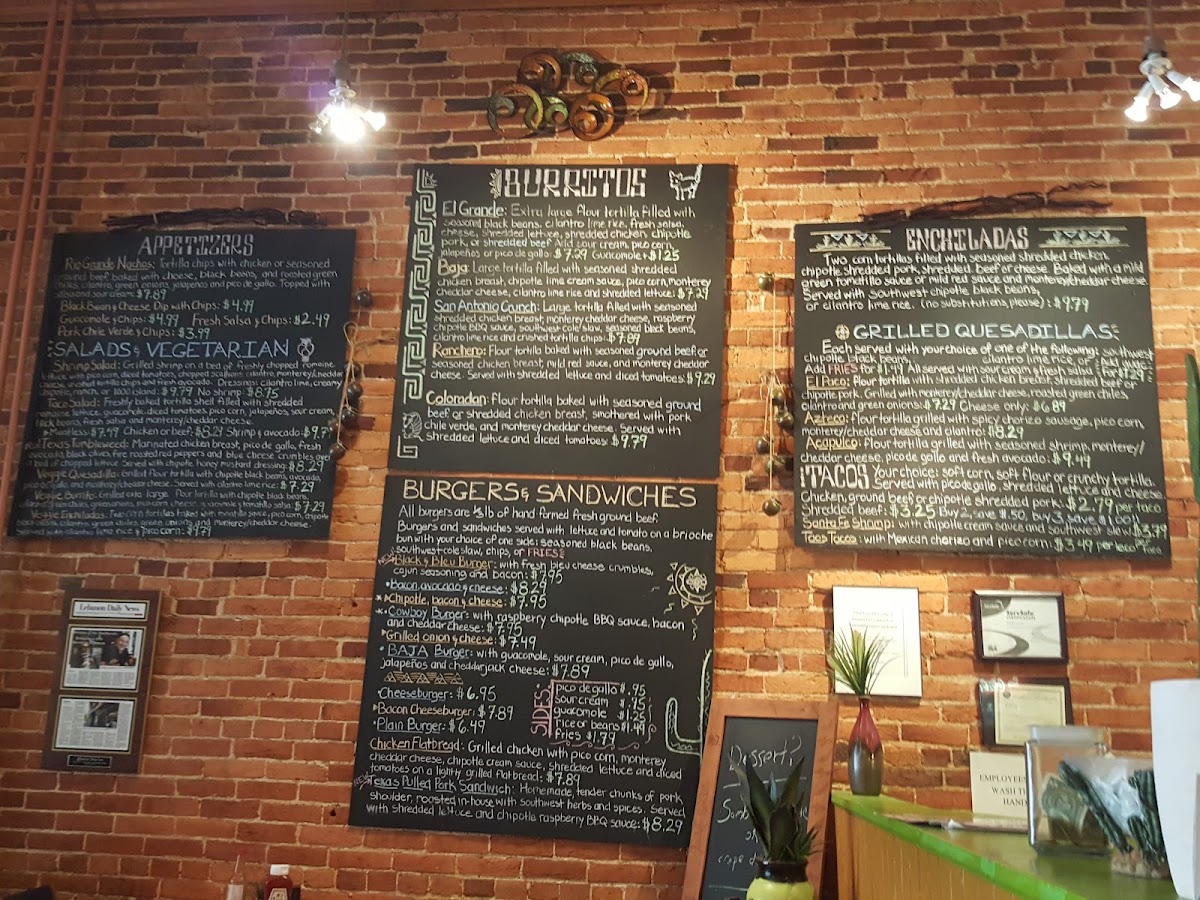 APPETIZERS
Rio Grande Nachos: Tortilla chips with chicken or seasoned
ground beef baked with cheese, black beans, and roasted green
chiles, cilantro, green onions, jalapenos and pico de gallo. Topped with
sour cream: $7.89
Black Bean & Cheese Dip with Chips: $4.99
Guacamole & Chips: $4.99 Fresh Salsa & Chips: $2.49
Pork Chile Verde & Chips: $3.99
SALADS & VEGETARIAN
Shrimp Salad: Grilled shrimp on a bed of freshly chopped romaine
lettuce with pico corn, diced tomatoes, chopped scallions, cilantro, monterey/cheddar
cheese, crushed tortilla chips and fresh avocado. Dressings: cilantro lime, creamy
chipotle, ranch, or 1000 island: $9.79 No shrimp: $8.75
Taco Salad: Freshly baked tortilla shell filled with shredded
romaine lettuce, guacamole, diced tomatoes, pico corn, jalapenos, sour cream,
black beans, fresh salsa and monterey/cheddar cheese.
Meatless: $7.49 Chicken or beef: $8.29 Shrimp & avocado:
Texas Tumbleweed: Marinated chicken breast, pico de gallo, fresh
avocado, black olives, fire roasted red peppers and blue cheese crumbles over
a bed of chopped lettuce. Served with chipotle honey mustard dressing: $8.29
Veggie Quesadilla: Grilled flour tortilla with chipotle black beans, avocado,
pico de gallo and monterey/cheddar cheese. Served with cilantro lime rice: $7.29
Veggie Burrito: Grilled extra large flour tortilla with chipotle black beans,
$7.29
Veggie Enchiladas: Two corn tortillas baked with mild salsa, pico corn, chipotle
black beans, cilantro, green chiles, green onions, and Monterey/cheddar cheese.
Served with cilantro lime rice & pico corn: $9.79
BURRITOS
El Grande: Extra large flour tortilla filled with
seasoned black beans, cilantro lime rice, fresh salsa,
cheese, shredded lettuce, shredded chicken, chipotle
pork, or shredded beef. Add sour cream, pico corn,
jalapeños or pico de gallo: $7.29 Guacamole +$1.25
Baja: Large tortilla filled with seasoned shredded
chicken breast, chipotle lime cream sauce, pico corn, monterey
cheddar cheese, cilantro lime rice and shredded lettuce: $7.29
San Antonio Crunch: Large tortilla filled with seasoned
shredded chicken breast, monterey cheddar cheese, raspberry
chipotle BBQ sauce, southwest cole slaw, seasoned black beans,
cilantro lime rice and crushed tortilla chips: $7.89
Ranchero: Flour tortilla baked with seasoned ground beef or
seasoned chicken breast, mild red sauce, and monterey cheddar
cheese. Served with shredded lettuce and diced tomatoes: $9.29
Coloradan: Flour tortilla baked with seasoned ground
beef or shredded chicken breast, smothered with pork
chile verde, and monterey cheddar cheese. Served with
shredded lettuce and diced tomatoes: $9.79
BURGERS & SANDWICHES
All burgers are 1/3 lb of hand formed fresh ground beef.
Burgers and sandwiches served with lettuce and tomato on a brioche
bun with your choice of one side: seasoned black beans,
southwest cole slaw, chips, or FRIES
Black & Bleu Burger: with fresh bleu cheese crumbles,
cajun seasoning and bacon: $7.95
• Bacon, avocado & cheese: $8.29
Chipotle, bacon & cheese: $7.95
Cowboy Burger: with raspberry chipotle BBQ sauce, bacon
and cheddar cheese: $7.95
Grilled onion & cheese: $7.49
• BAJA Burger: with guacamole, sour cream, pico de gallo,
jalapeños and cheddarjack cheese: $7.89
• Cheeseburger: $6.95
Bacon Cheeseburger: $7.89
• Plain Burger: $6.49
SIDES
pico de gallo $.95
sour cream $.45
guacamole $1.25
rice or beans $1.49
fries $1.79
Chicken Flatbread: Grilled chicken with pico corn, monterey
cheddar cheese, chipotle cream sauce, shredded lettuce and diced
tomatoes on a lightly grilled flatbread: $7.89
Texas Pulled Pork Sandwich: Homemade, tender chunks of pork
shoulder, roasted in-house with Southwest herbs and spices. Served
with shredded lettuce and chipotle raspberry BBQ sauce: $8.29
ENCHILADAS
Two corn tortillas filled with seasoned shredded chicken,
chipotle shredded pork, shredded beef or cheese. Baked with a mild
green tomatillo sauce or mild red sauce and monterey/cheddar cheese.
Served with southwest chipotle black beans,
or cilantro lime rice (no substitutions, please): $9.79
GRILLED QUESADILLAS
Each served with your choice of one of the following: southwest
chipotle black beans, cilantro lime rice or
Add FRIES for $1.49 All served with sour cream & fresh salsa
El Paco: Flour tortilla with shredded chicken breast, shredded beef or
chipotle pork. Grilled with monterey/cheddar cheese, roasted green chiles,
cilantro and green onions: $7.29 Cheese only: $6.89
Azteca: Flour tortilla grilled with spicy chorizo sausage, pico corn,
monterey/cheddar cheese and cilantro: $8.29
Acapulco: Flour tortilla grilled with seasoned shrimp, monterey/
cheddar cheese, pico de gallo and fresh avocado: $9.49
¡TACOS Your choice: soft corn, soft flour or crunchy tortilla.
Served with pico de gallo, shredded lettuce and cheese
Chicken, ground beef or chipotle shredded pork: $2.99 per taco
Shredded beef: $3.25 Buy 2, save $.50, buy 3, save $1.00!
Santa Fe Shrimp: with chipotle cream sauce and southwest slaw $3.79
Taos Tacos: with Mexican chorizo and pico corn: $3.49 per taco
Lebanon Daily News
ServSafe
Dessert?
EMPLOYEES
WASH
HAND